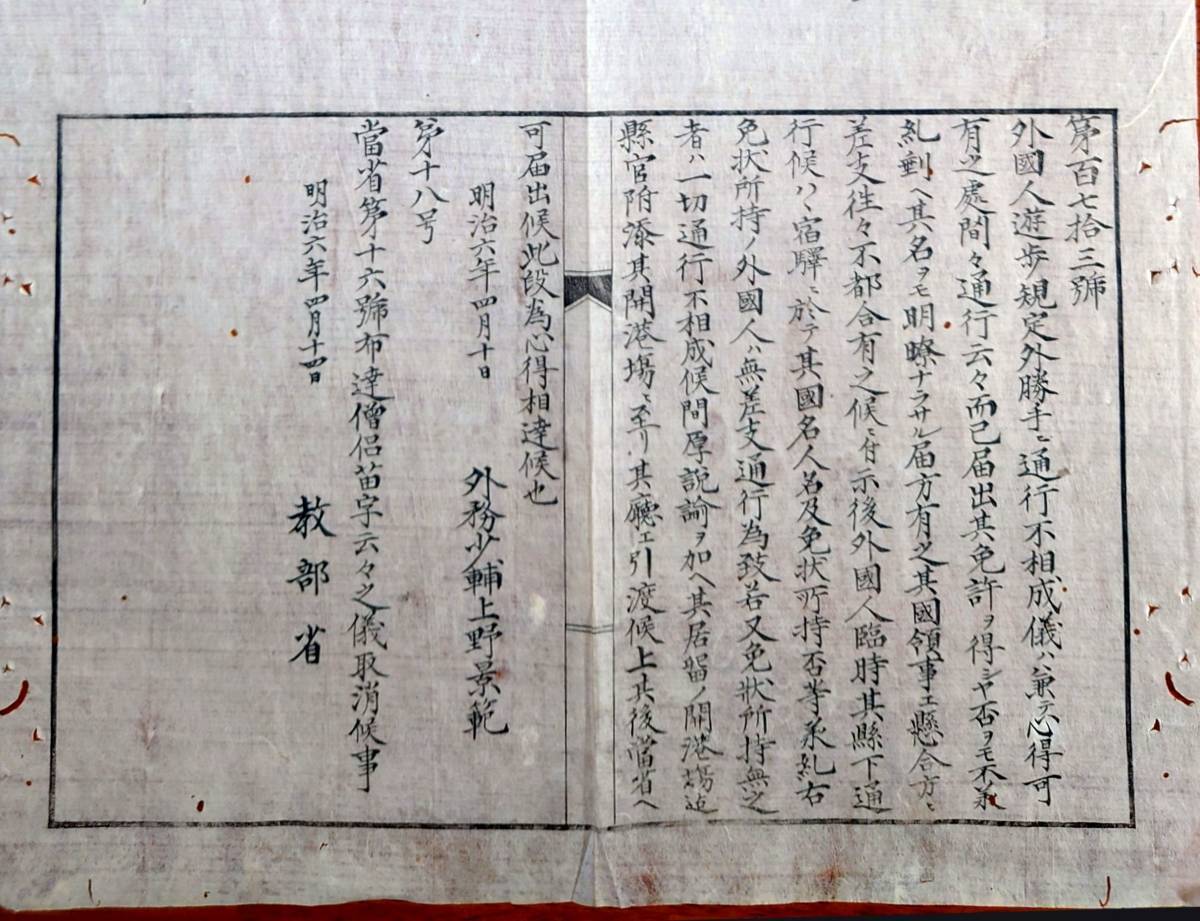 第百七拾三號
外國人遊歩規定外勝手ニ通行不相成儀ハ兼テ心得可
有之處間々通行云々而已届出其免許ヲ得シヤ否ヲモ不承
糺剰ヘ其名ヲモ明瞭ナラサル届方有之其國領事エ懸合方ニ
差支往々不都合有之候ニ付示後外國人臨時其縣下通
行候ハヽ宿驛ニ於テ其國名人名及免状所持否等承糺右
免状所持ノ外國人ハ無差支通行為致若又免状所持無之
者ハ一切通行不相成候間厚説諭ヲ加ヘ其居留ノ開港場迠
縣官附添其開港場ニ至リ其廳エ引渡候上其後當省ヘ
可届出候此段為心得相達候也
明治六年四月十日
外務少輔上野景範
第十八号
當省第十六號布達僧侶苗字云々之儀取消候事
明治六年四月十四日
教部省